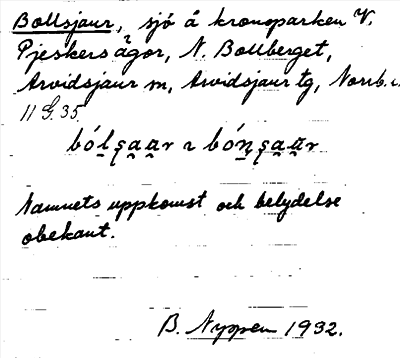 Bollsjaur, sjö å kronoparken V.
Pjeskersågor, N. Bollberget,
Arvidsjaur sn, Arvidsjaur tg, Norrb. l.
11 G. 35.
Namnets uppkomst och betydelse
obekant.
B. Nyppen 1932.